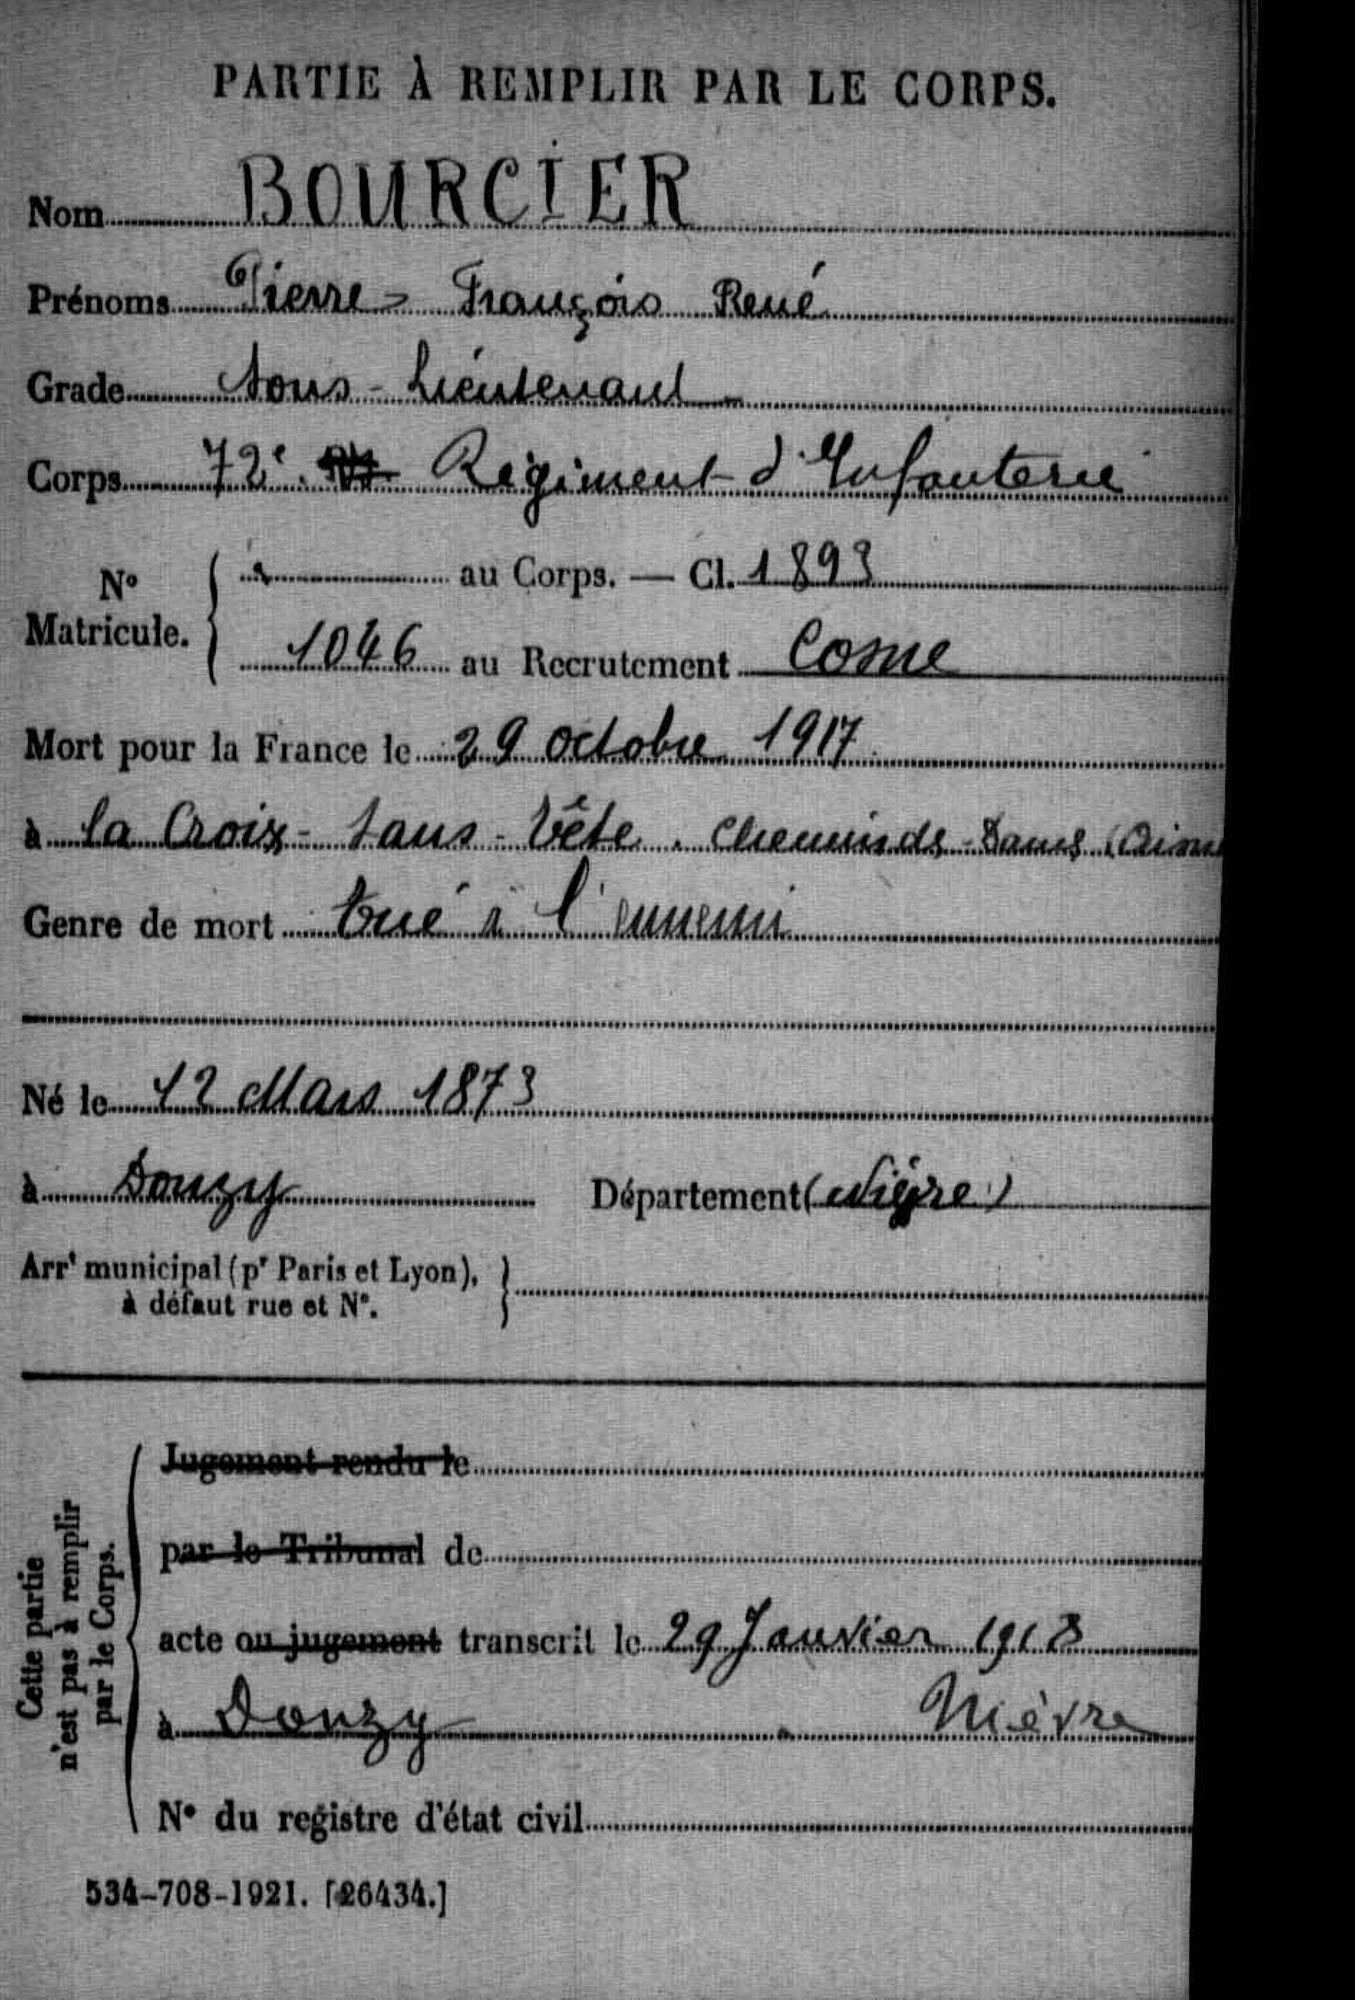 PARTIE À REMPLIR PAR LE CORPS.
Nom BOURCIER
Prénoms Pierre - François René
Grade Sous - Lieutenant
Corps 72e Régiment d'Infanterie
N° Matricule. au Corps. — Cl. 1893
1046 au Recrutement Cosne
Mort pour la France le 29 octobre 1917
à la Croix - Sans - Tête. Chemin ds - Dames (Aisne
Genre de mort tué à l'ennemi
Né le 12 Mars 1873
à Donzy Département (Nièvre)
Arrt municipal (pr Paris et Lyon),
à défaut rue et N°.
Cette partie
n'est pas à remplir
par le Corps.
Jugement rendu le
par le Tribunal de
acte ou jugement transcrit le 29 Janvier 1918
à Donzy Nièvre
N° du registre d'état civil
534-708-1921. [26434.]